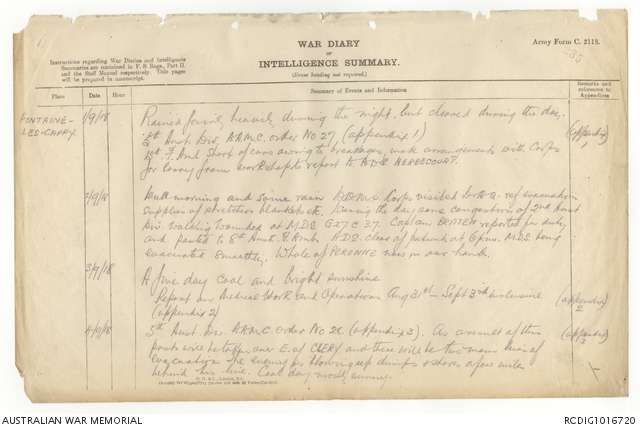 WAR DIARY
or
INTELLIGENCE SUMMARY.
(Erase heading not required.)
Army Form C. 2118.
Instructions regarding War Diaries and Intelligence
Summaries are contained in F. S. Regs., Part II.
and the Staff Manual respectively. Title pages
will be prepared in manuscript.
Place
Date
Hour
Summary of Events and Information
Remarks and
references to
Appendices
FONTAINE-
LES-CAPPY.
1/9/18
Rained fairly heavily during the night, but cleared during the day.
5th Aust. Div. A.A.M.C. order No 27 (appendix 1)
15th F. Amb short of cars owing to breakages, made arrangements with Corps
for lorry from workshops to report to A.D.S. HERBECOURT.
(appendix
1
2/9/18
Dull morning and some rain. Corps visited D.H.Q. ref evacuation
supplies of stretchers blankets etc. During the day some congestion of 2nd Aust
Div. walking wounded at M.D.S. G27 C 3.7. Captain reported for duty
and posted to 8th Aust. F. Amb. A.D.S. clear of patients at 6 p.m. M.D.S. being
evacuated smoothly. Whole of PERONNE now in our hands.
3/9/18
A fine day cool and bright sunshine
Report on Medical Work and Operations Aug 31st - Sept 3rd inclusive
(appendix 2)
(appendix
2
4/9/18
5th Aust. Div. A.A.M.C. order No 28 (appendix 3). As a result of this
posts will be taken over E. of CLERY and there will be two main lines of
evacuation. The enemy is blowing up dumps & stores a few miles
behind his line. Cool day
(appendix
3
AUSTRALIAN WAR MEMORIAL
RCDIG1016720